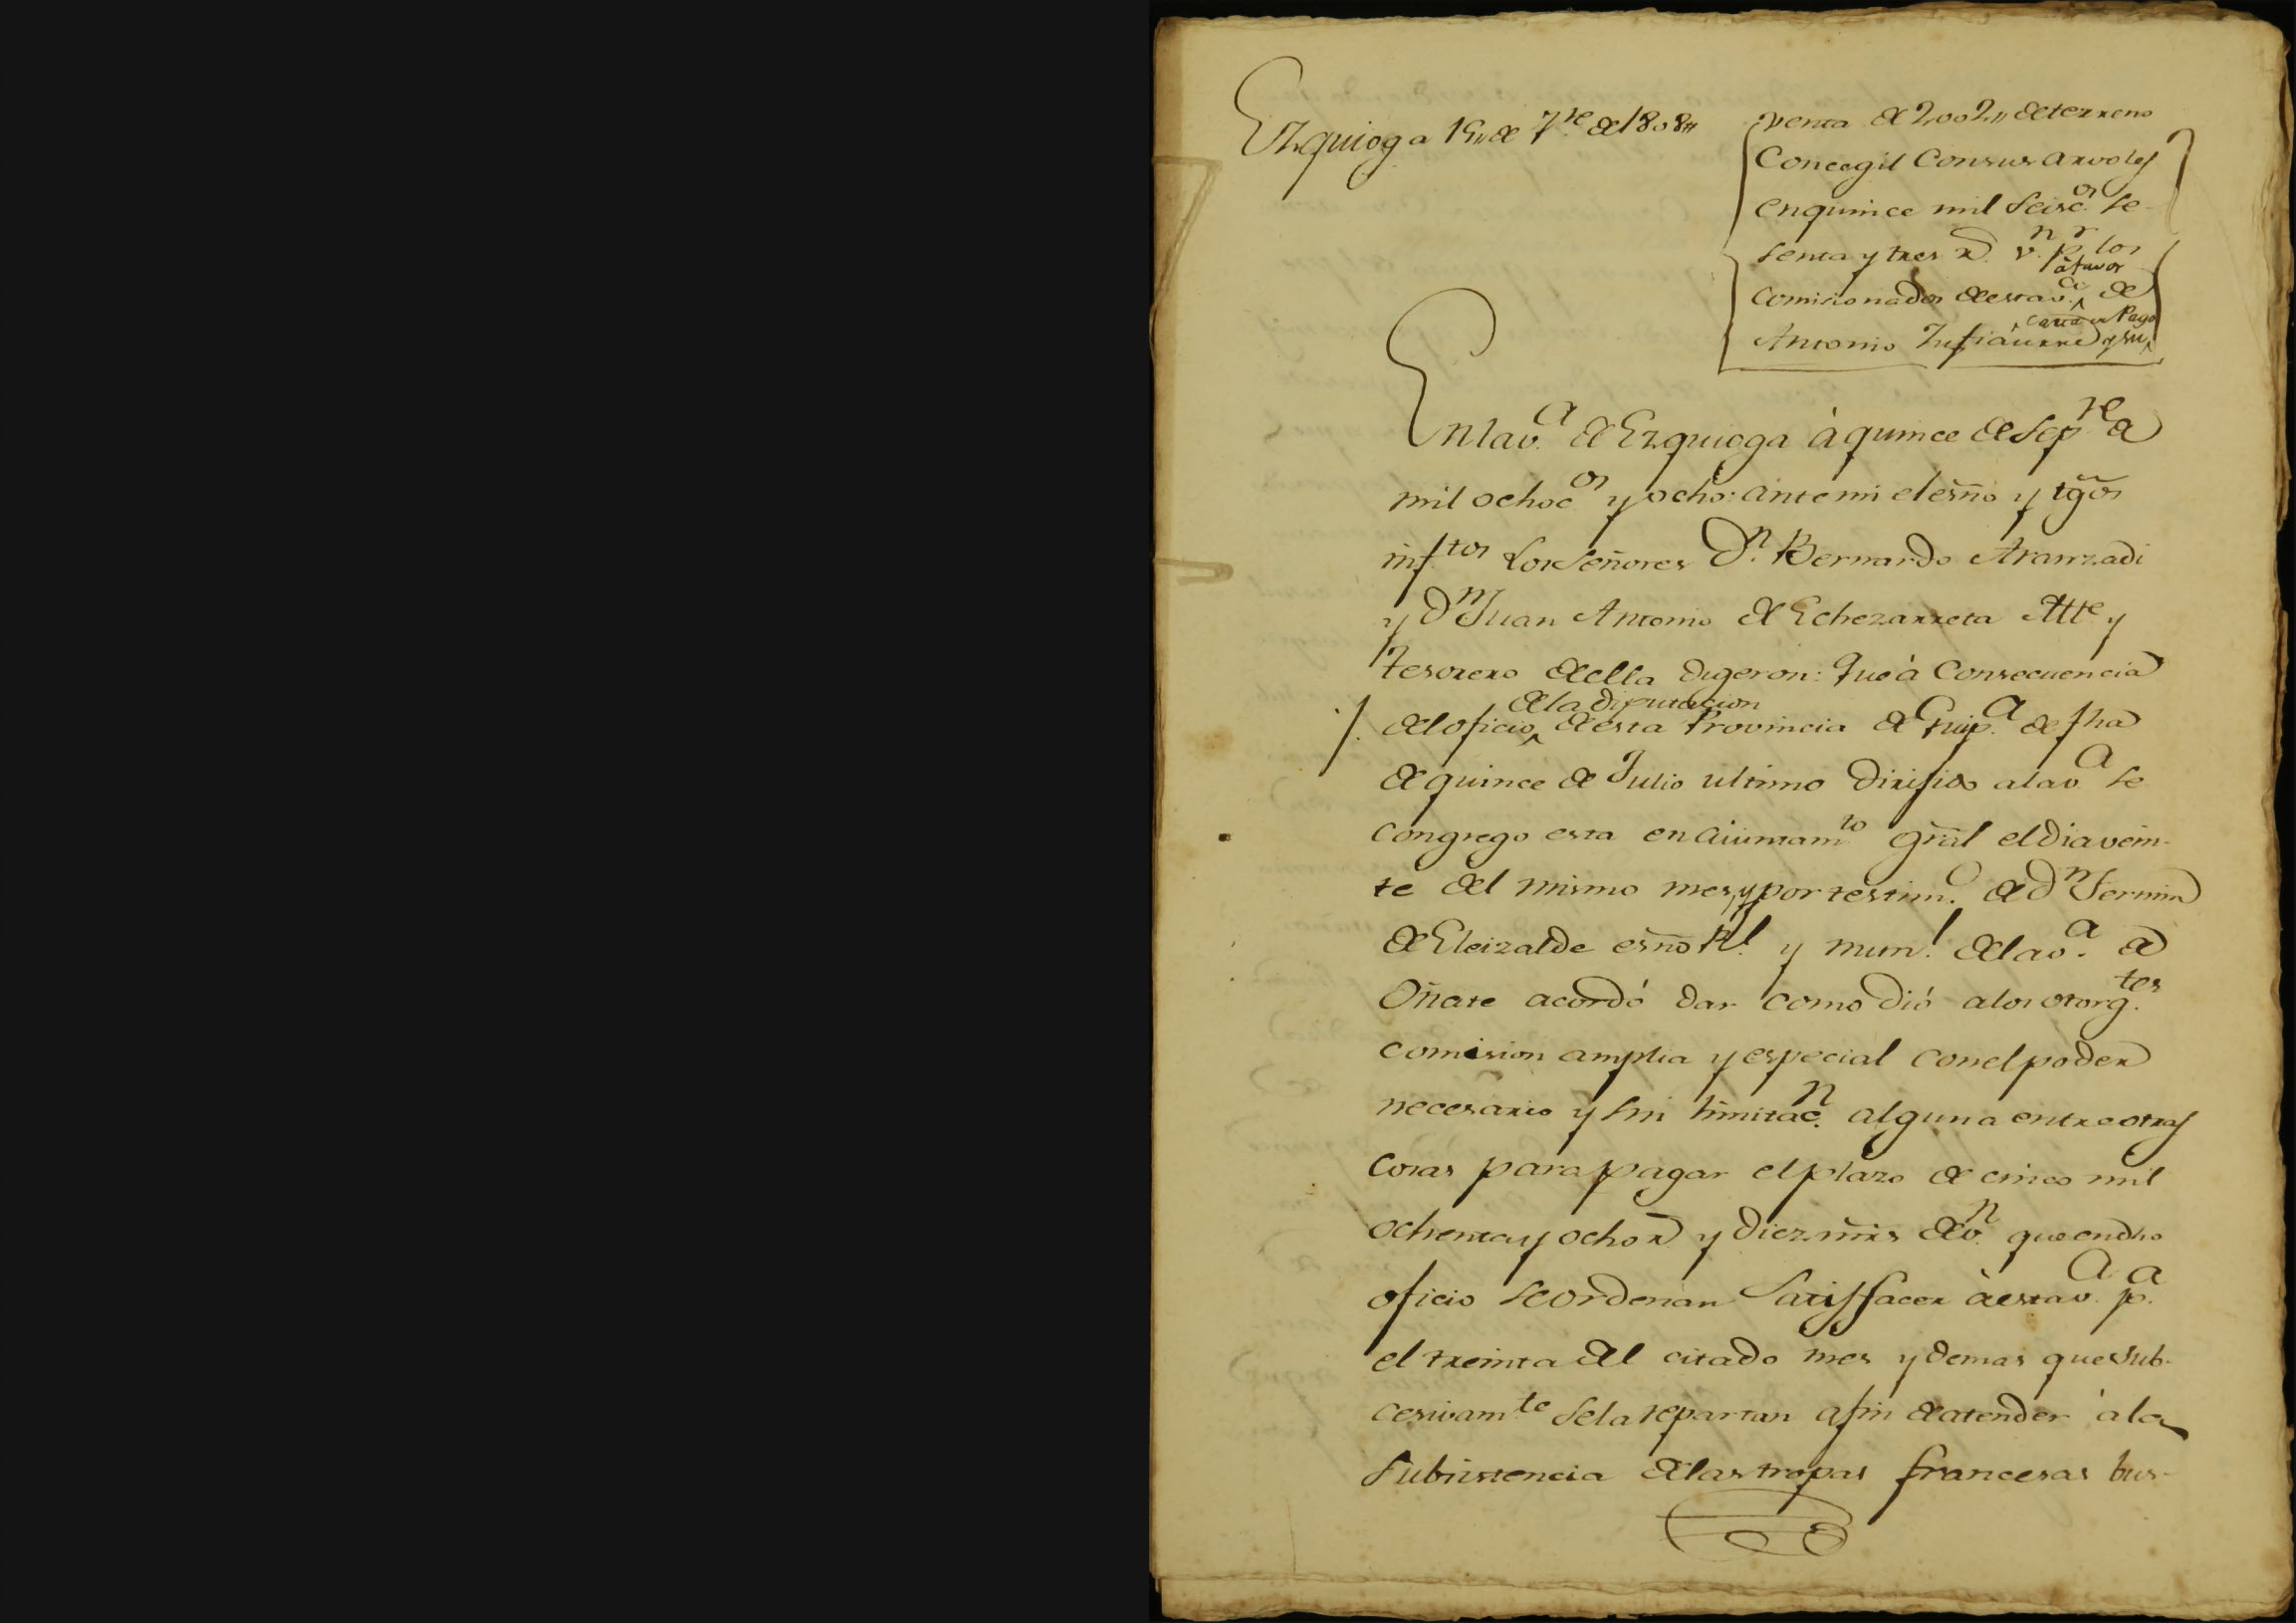 Ezquioga 15,, de 7.re de 1808,,
Venta de 2002,, de terreno
Concegil Con sus arvoles
en quince mil Seisc.os se-
senta y tres r.s v.n p.r los
Comisionados de esta v.a â favor de
Antonio y su carta de Pago
En la v.a de Ezquioga à quince de Sep.re de
mil ochoc.os y ocho: ante mi el esño y tgõs
inf.tos Los Señores D.n Bernardo Aranzadi
y D.n Juan Antonio de Echezarreta Atte y
tesorero de ella digeron: Que à Consecuencia
del oficio de la diputacion de esta Provincia de Guip.a de fha
de quince de Julio ultimo dirijido a la v.a se
congrego esta en aiuntam.to gràl el dia vein-
te del mismo mes, y por testim.o de D.n Fermin
de Eleizalde esño R.l y num.l de la v.a de
Oñate acordó dar como dió a los otorg.tes
comision amplia y especial con el poder
necesario y sin limitac.n alguna entre otras
cosas para pagar el plazo de cinco mil
ochenta y ocho r.s y diez mrs de v.n que en dho
oficio se ordenan Satisfacer à esta v.a p.a
el treinta del citado mes y demas que sub-
cesivam.te se la repartan a fin de atender à la
Subsistencia de las tropas francesas bus-